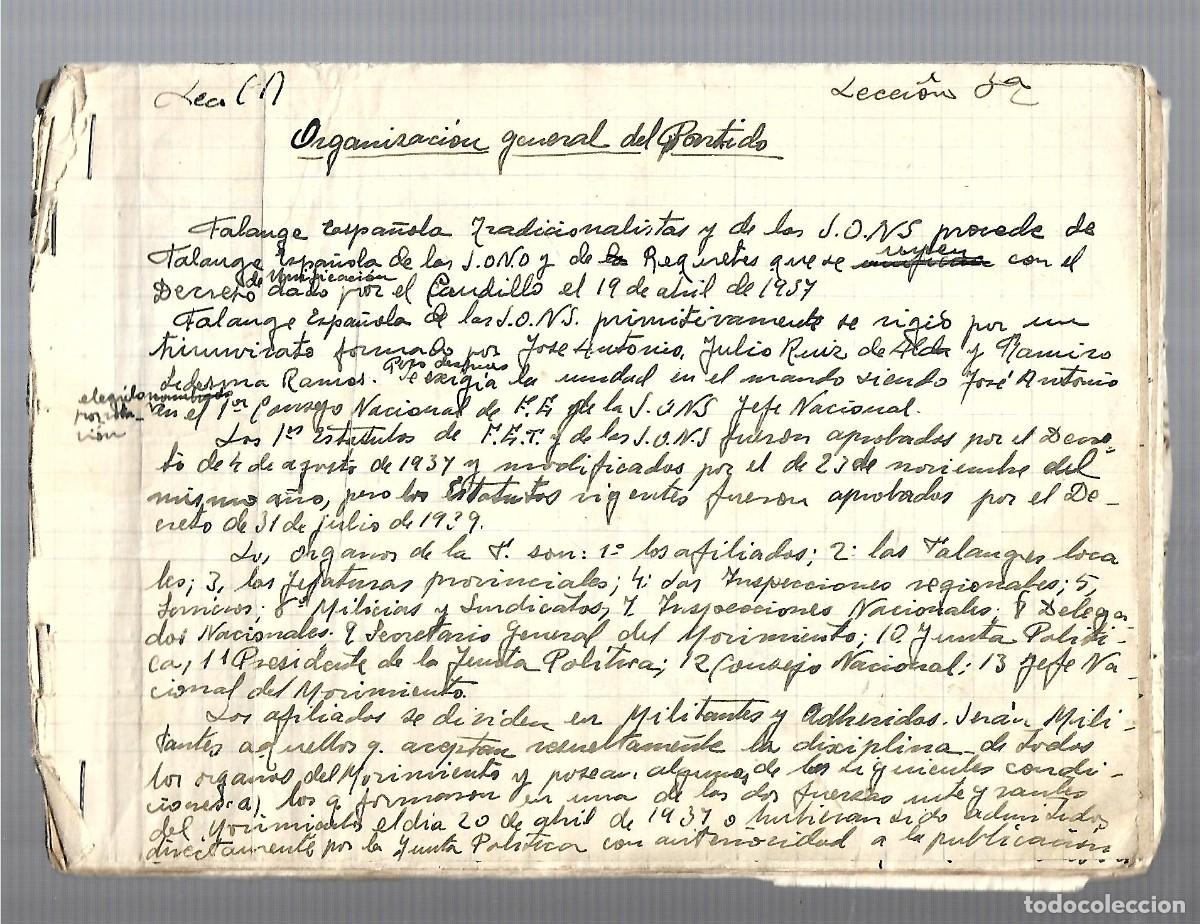 Lección 5ª
Organización general del Partido
Falange Española Tradicionalistas y de las J.O.N.S procede de
Falange Española de las J.O.N.O y de la Requetes que se unen con el
Decreto de Unificación dado por el Caudillo el 19 de abril de 1937
Falange Española de las J.O.N.S. primitivamente se rigió por un
triunvirato formado por José Antonio, Julio Ruiz de Alda y Ramiro
Ledesma Ramos. Pero después se exigía la unidad en el mando siendo José Antonio
elegido nombrado
por vota-
ción
en el 1er Consejo Nacional de F.E y de la J.ONS Jefe Nacional.
Los 1os Estatutos de F.E.T. y de las J.O.N.S fueron aprobados por el Decre-
to de 4 de agosto de 1937 y modificados por el de 23 de noviembre del
mismo año, pero los Estatutos vigentes fueron aprobados por el De-
creto de 31 de julio de 1939.
Los organos de la F. son: 1º los afiliados; 2: las Falanges loca
les; 3, las Jefaturas provinciales; 4: las Inspecciones regionales; 5,
Servicios; 6º Milicias y Sindicatos, 7 Inspecciones Nacionales. 8 Delega
dos Nacionales. 9 Secretario General del Movimiento; 10 Junta Políti-
ca, 11 Presidente de la Junta Política; 12 Consejo Nacional; 13 Jefe Na-
cional del Movimiento.
Los afiliados se dividen en Militantes y Adheridos. Serán Mili-
tantes aquellos q. aceptan resueltamente la disciplina de todos
los organos del Movimiento y posean algunas de las siguientes condi-
ciones: a) los q formaron en una de las dos fuerzas integrantes
del Movimiento el dia 20 de abril de 1937 o hubieran sido admitidos
directamente por la Junta Política con anterioridad a la publicación
todocoleccion